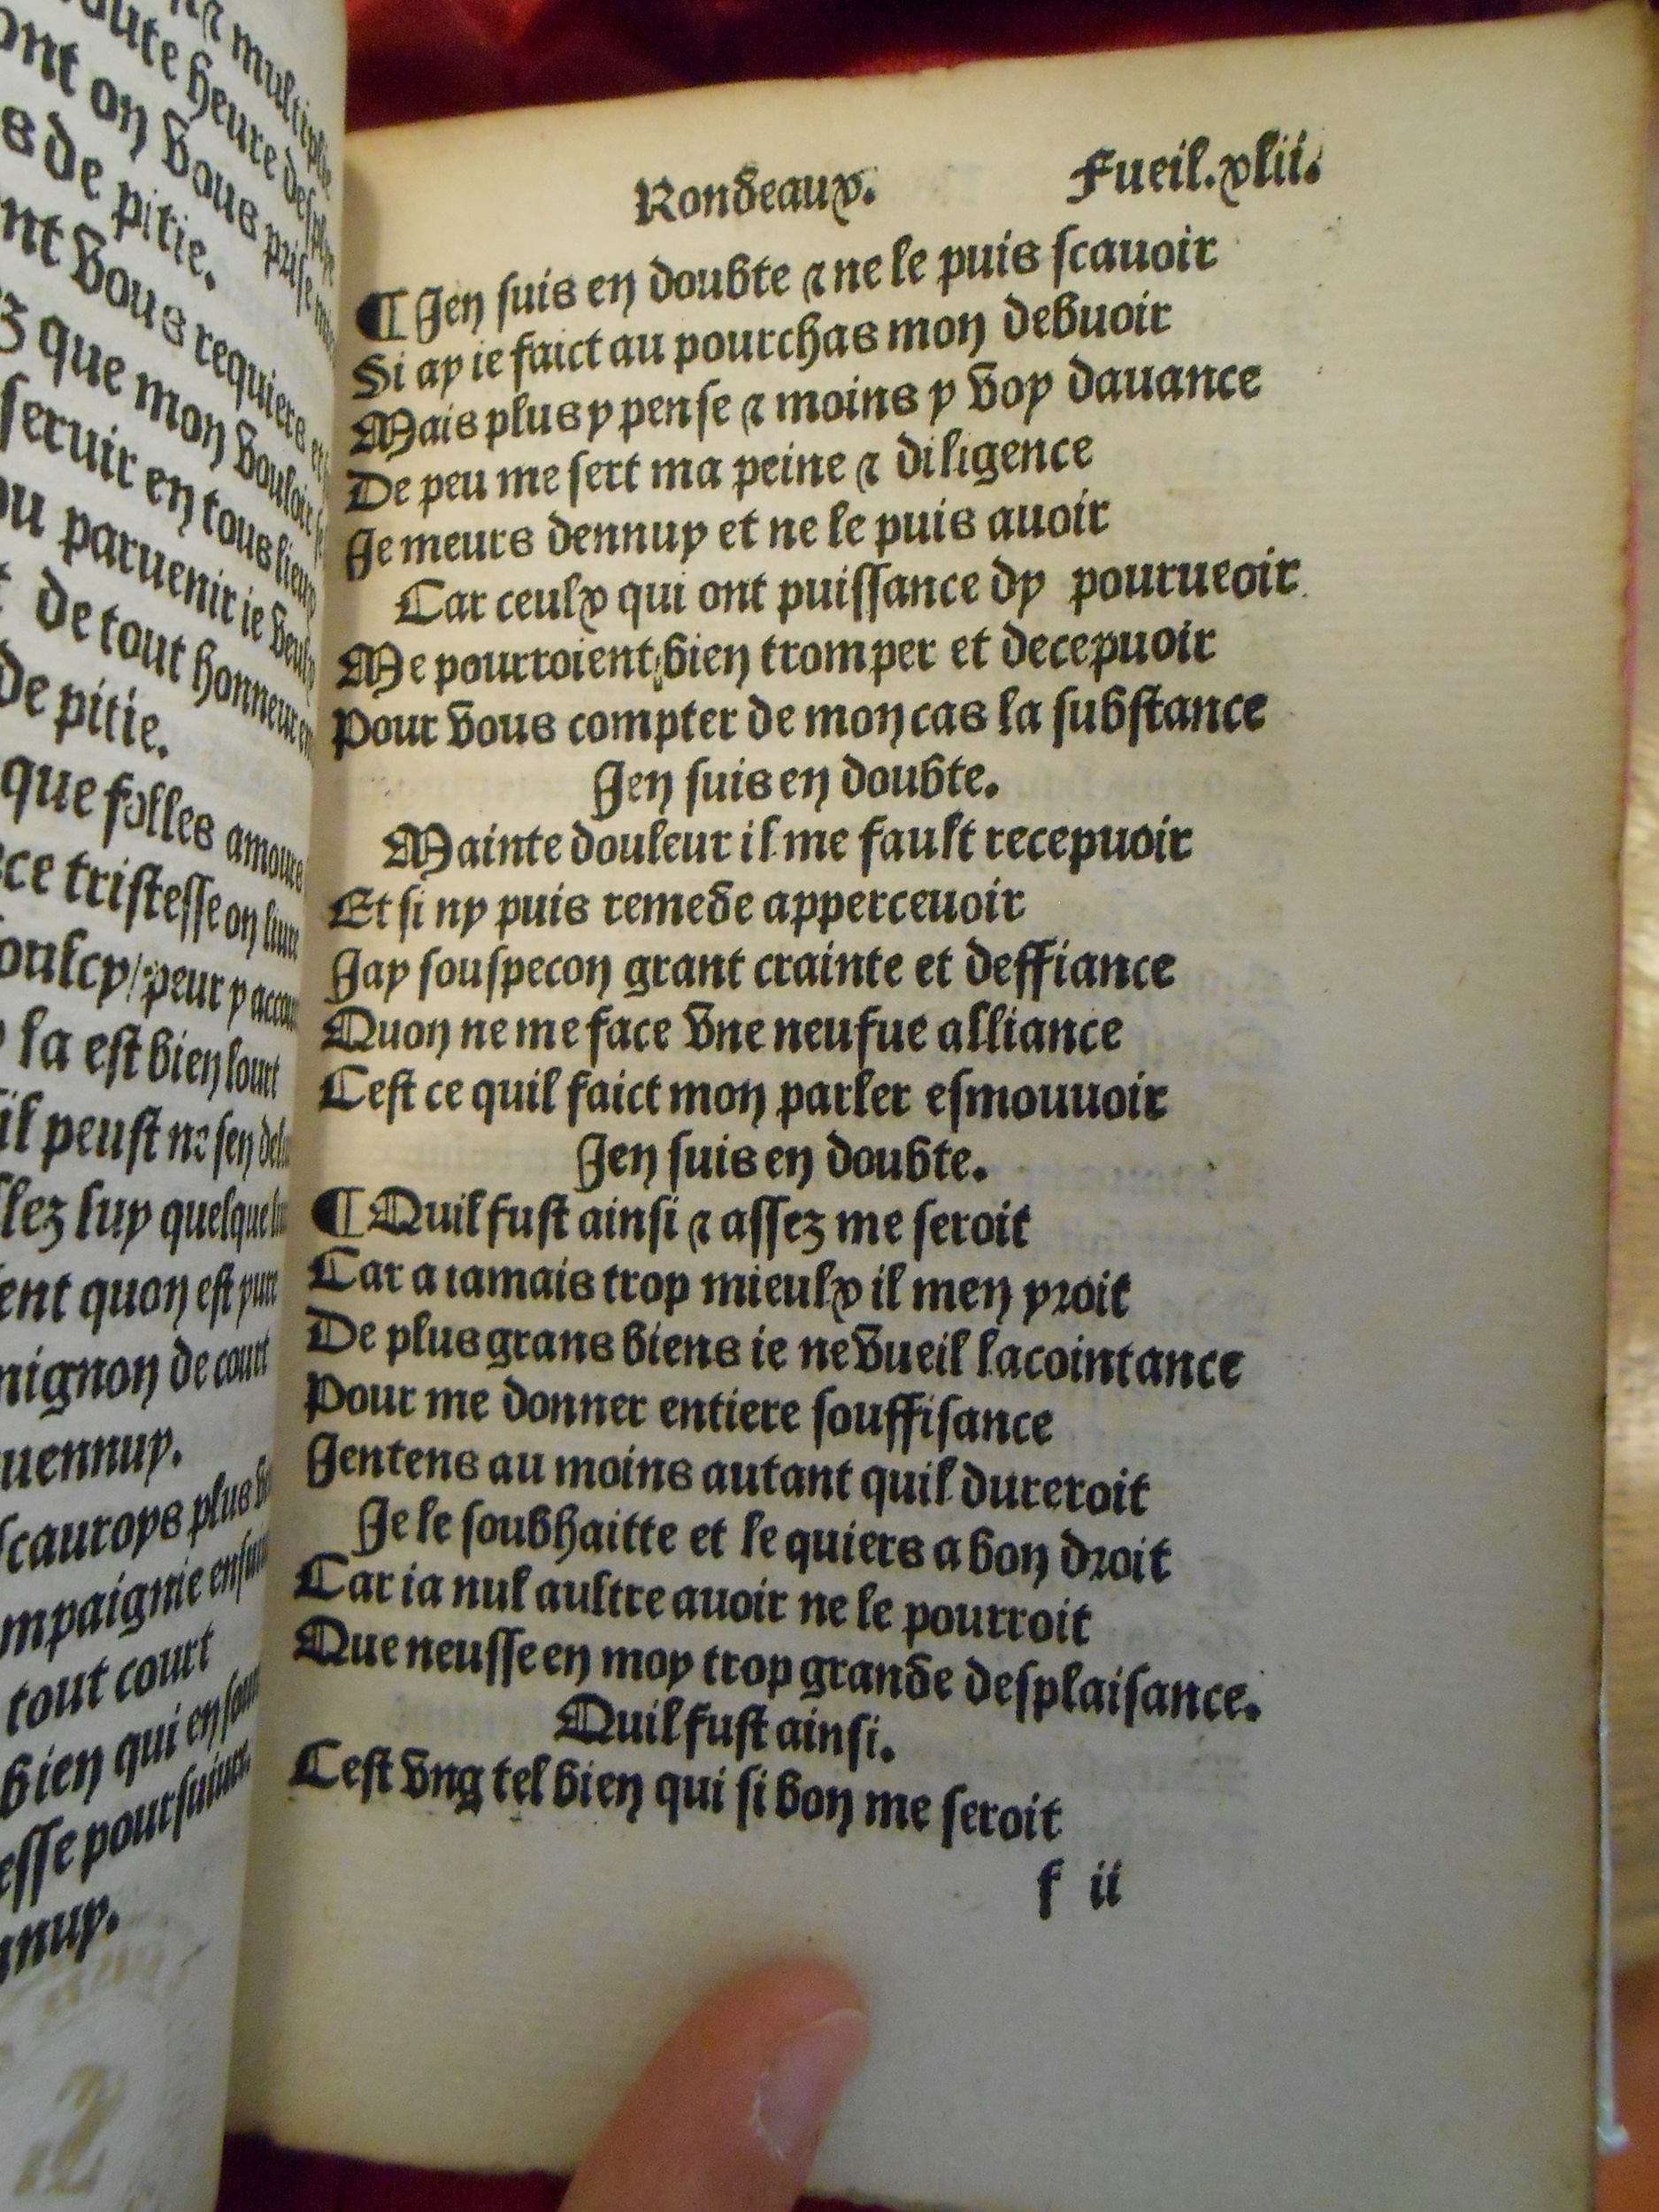 & multiplie
oute heure
ont on vous prise
s de pitie.
nt vous requiers
z que mon vouloir
seruir en tous lieux
ou paruenir ie veulx
de tout honneur
de pitie.
que folles amours
ce tristesse on liure
oulcy/peur y
la est bien lourt
il peust ne sen
lez luy quelque
ent quon est
mignon de court
uennuy.
scauroys plus
mpaignie
tout court
bien qui en
esse poursuiure
nnuy.
Rondeaux. Fueil.xlii.
¶ Jen suis en doubte & ne le puis scauoir
Si ay ie faict au pourchas mon debuoir
Mais plus y pense & moins y voy dauance
De peu me sert ma peine & diligence
Je meurs dennuy et ne le puis auoir
Car ceulx qui ont puissance dy pourueoir
Me pourroient bien tromper et decepuoir
Pour vous compter de mon cas la substance
Jen suis en doubte.
Mainte douleur il me fault recepuoir
Et si ny puis remede apperceuoir
Jay souspecon grant crainte et deffiance
Quon ne me face vne neufue alliance
Cest ce quil faict mon parler esmouuoir
Jen suis en doubte.
¶ Quil fust ainsi & assez me seroit
Car a iamais trop mieulx il men yroit
De plus grans biens ie ne vueil lacointance
Pour me donner entiere souffisance
Jentens au moins autant quil dureroit
Je le soubhaitte et le quiers a bon droit
Car ia nul aultre auoir ne le pourroit
Que neusse en moy trop grande desplaisance.
Quil fust ainsi.
Cest vng tel bien qui si bon me seroit
f ii